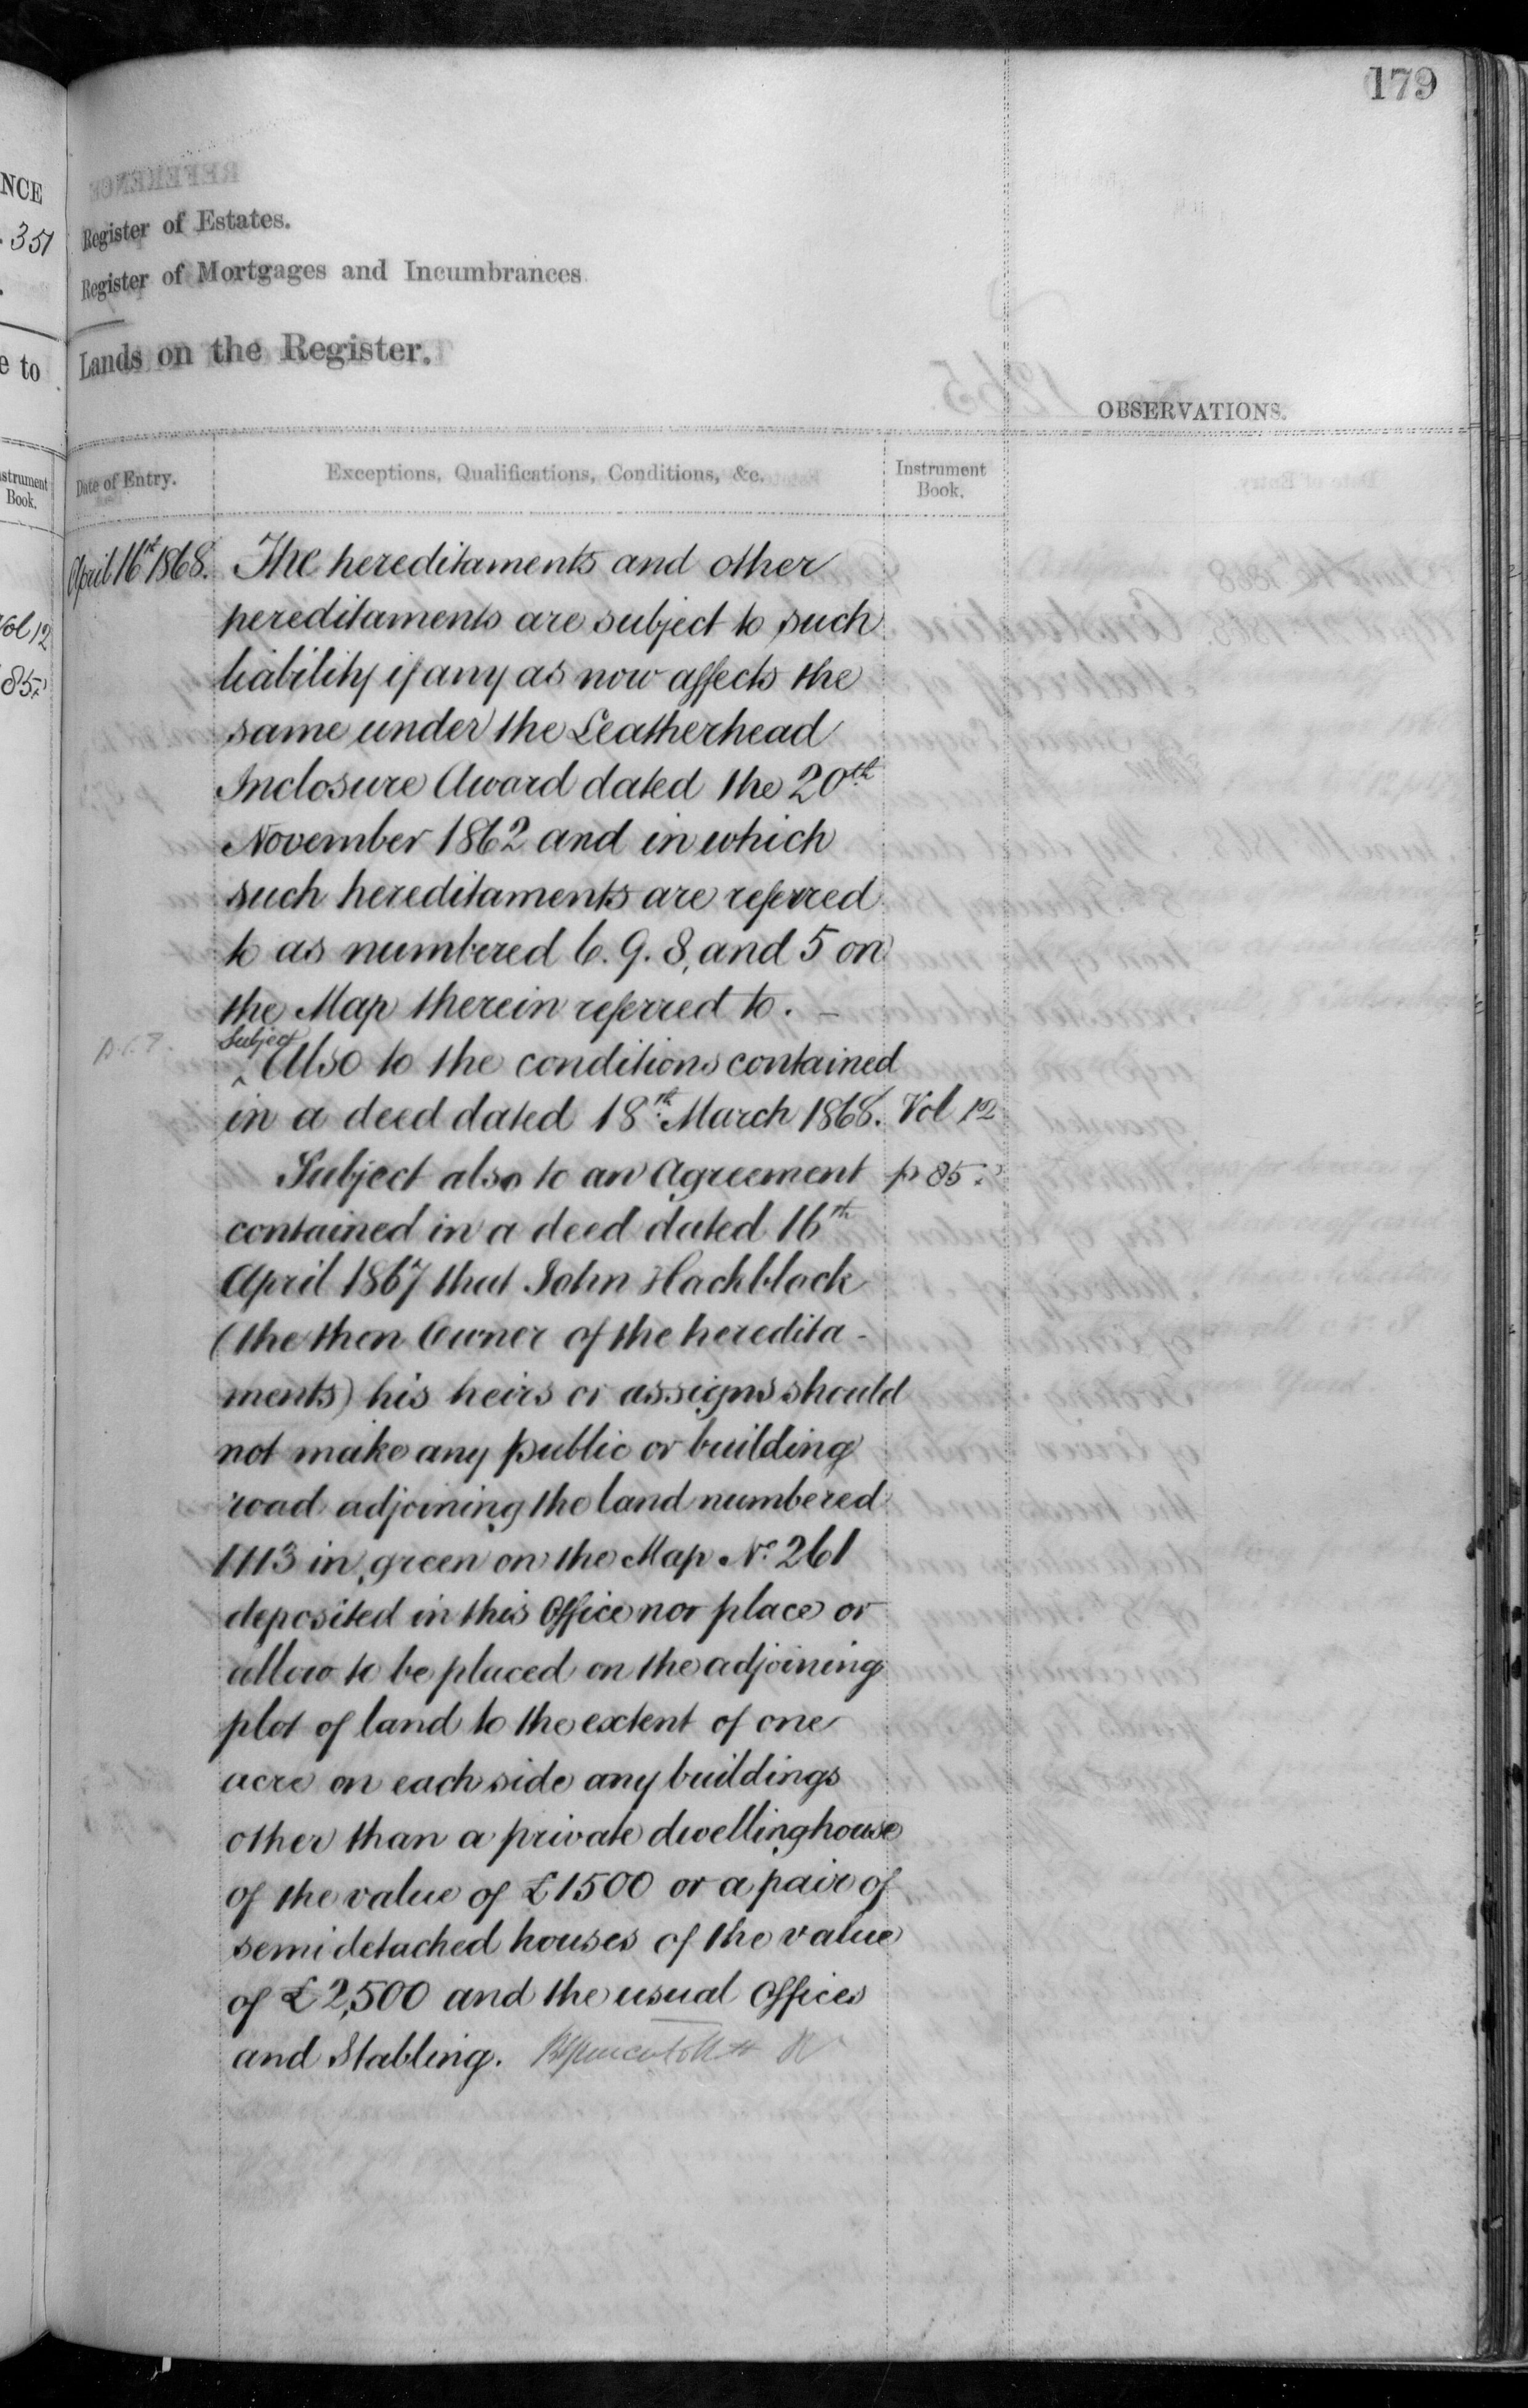 179
NCE
351
Register of Estates.
Register of Mortgages and Incumbrances.
Lands on the Register.
e to
OBSERVATIONS.
strument
Book.
Date of Entry.
Exceptions, Qualifications, Conditions, &c.
Instrument
Book.
April 16th 1868. The hereditaments and other
hereditaments are subject to such
liability if any as now affects the
same under the Leatherhead
Inclosure Award dated the 20th
November 1862 and in which
such hereditaments are referred
to as numbered 6. 9. 8, and 5 on
the Map therein referred to. –
Subject
^ Also to the conditions contained
in a deed dated 18th March 1868. Vol 12
Subject also to an Agreement p 85.
contained in a deed dated 16th
April 1867 that John Hackblock
(the then Owner of the heredita-
ments) his heirs or assigns should
not make any public or building
road adjoining the land numbered
1113 in green on the Map No 261
deposited in this Office nor place or
allow to be placed on the adjoining
plot of land to the extent of one
acre on each side any buildings
other than a private dwellinghouse
of the value of £1500 or a pair of
semi detached houses of the value
of £2,500 and the usual Offices
and Stabling.
Vol 12
85